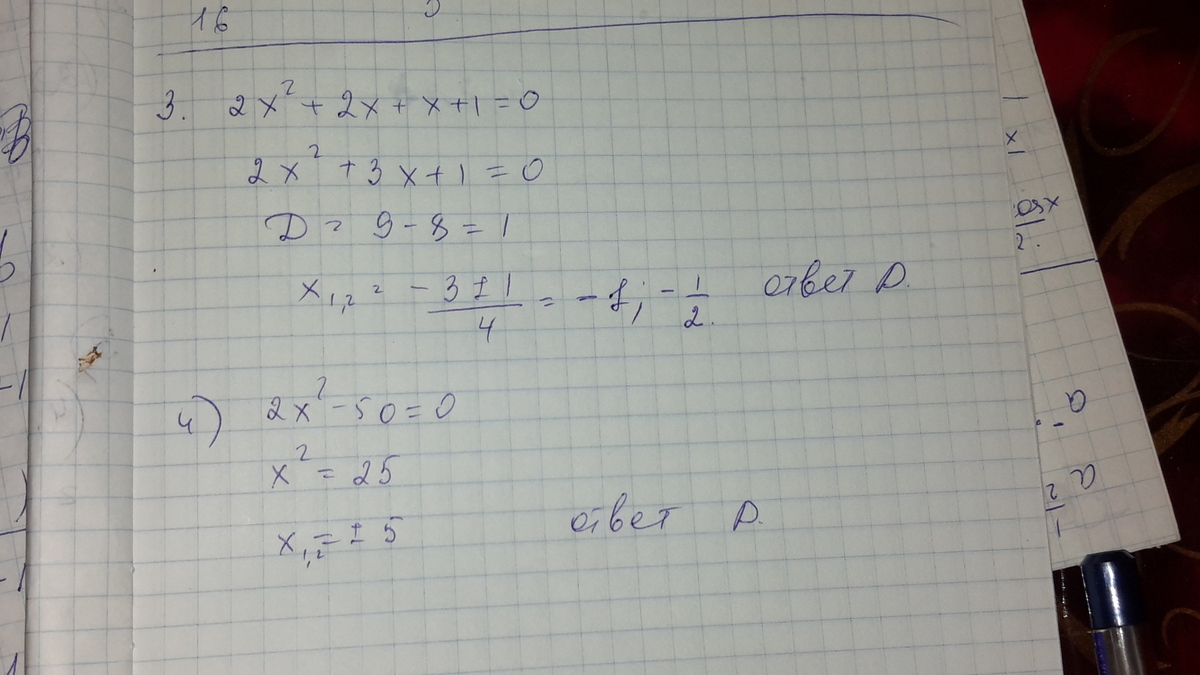 16
3. 2x² + 2x + x + 1 = 0
2x² + 3x + 1 = 0
D = 9 - 8 = 1
x₁,₂ = -3 ± 1 / 4 = -1; -1/2. ответ D.
4) 2x² - 50 = 0
x² = 25
x₁,₂ = ± 5 ответ D.